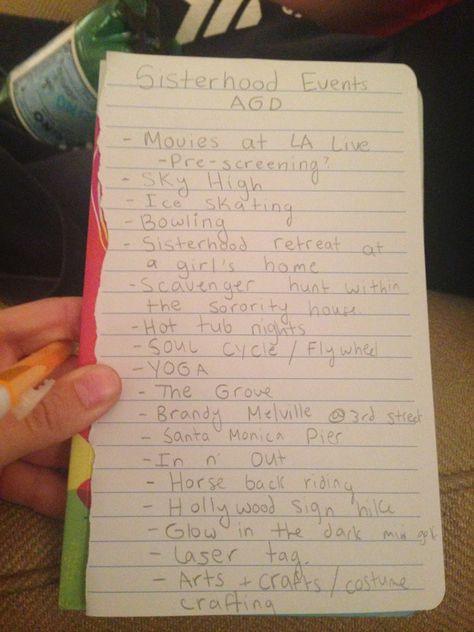 Sisterhood Events
AGD
- Movies at LA Live
- Pre-screening?
- Sky High
- Ice skating
- Bowling
- Sisterhood retreat at
a girl's home
- Scavenger hunt within
the sorority house
- Hot tub nights
- Soul Cycle / Flywheel
- YOGA
- The Grove
- Brandy Melville @ 3rd street
- Santa Monica Pier
- In n' Out
- Horse back riding
- Hollywood sign hike
- Glow in the dark mini golf
- Laser tag
- Arts + crafts / costume
crafting